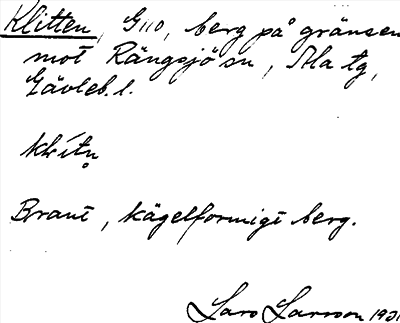 Klitten, Gno, berg på gränsen
mot Rängsjö sn, Ala tg,
Gävleb. l.
klítn̥
Brant, kägelformigt berg.
Lars Larsson